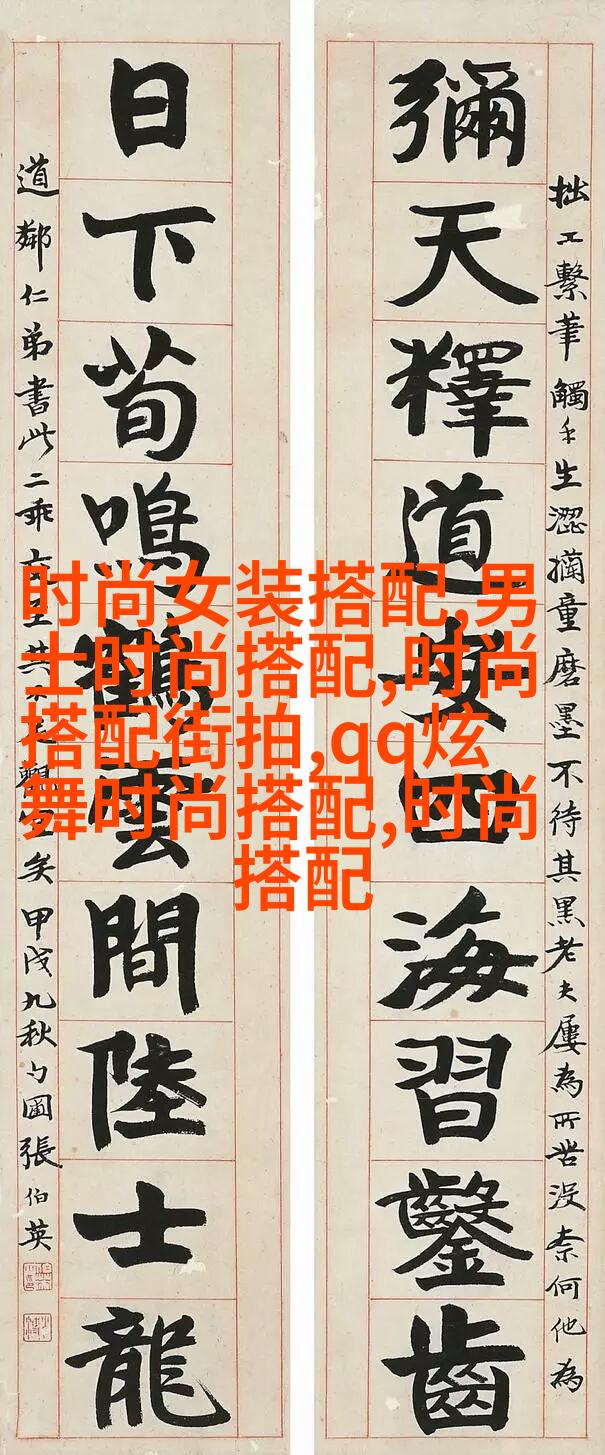 拙工繫筆觸手生澀童磨墨不待其黑老夫屢為所苦沒柰何也為
彌天釋道安四海習鑿齒
日下荀鳴鶴雲間陸士龍
道鄰仁弟書此二乖至共不矣甲戌九秋勺圃張伯英
时尚女装搭配,男
士时尚搭配,时尚
搭配街拍,qq炫
舞时尚搭配,时尚
搭配